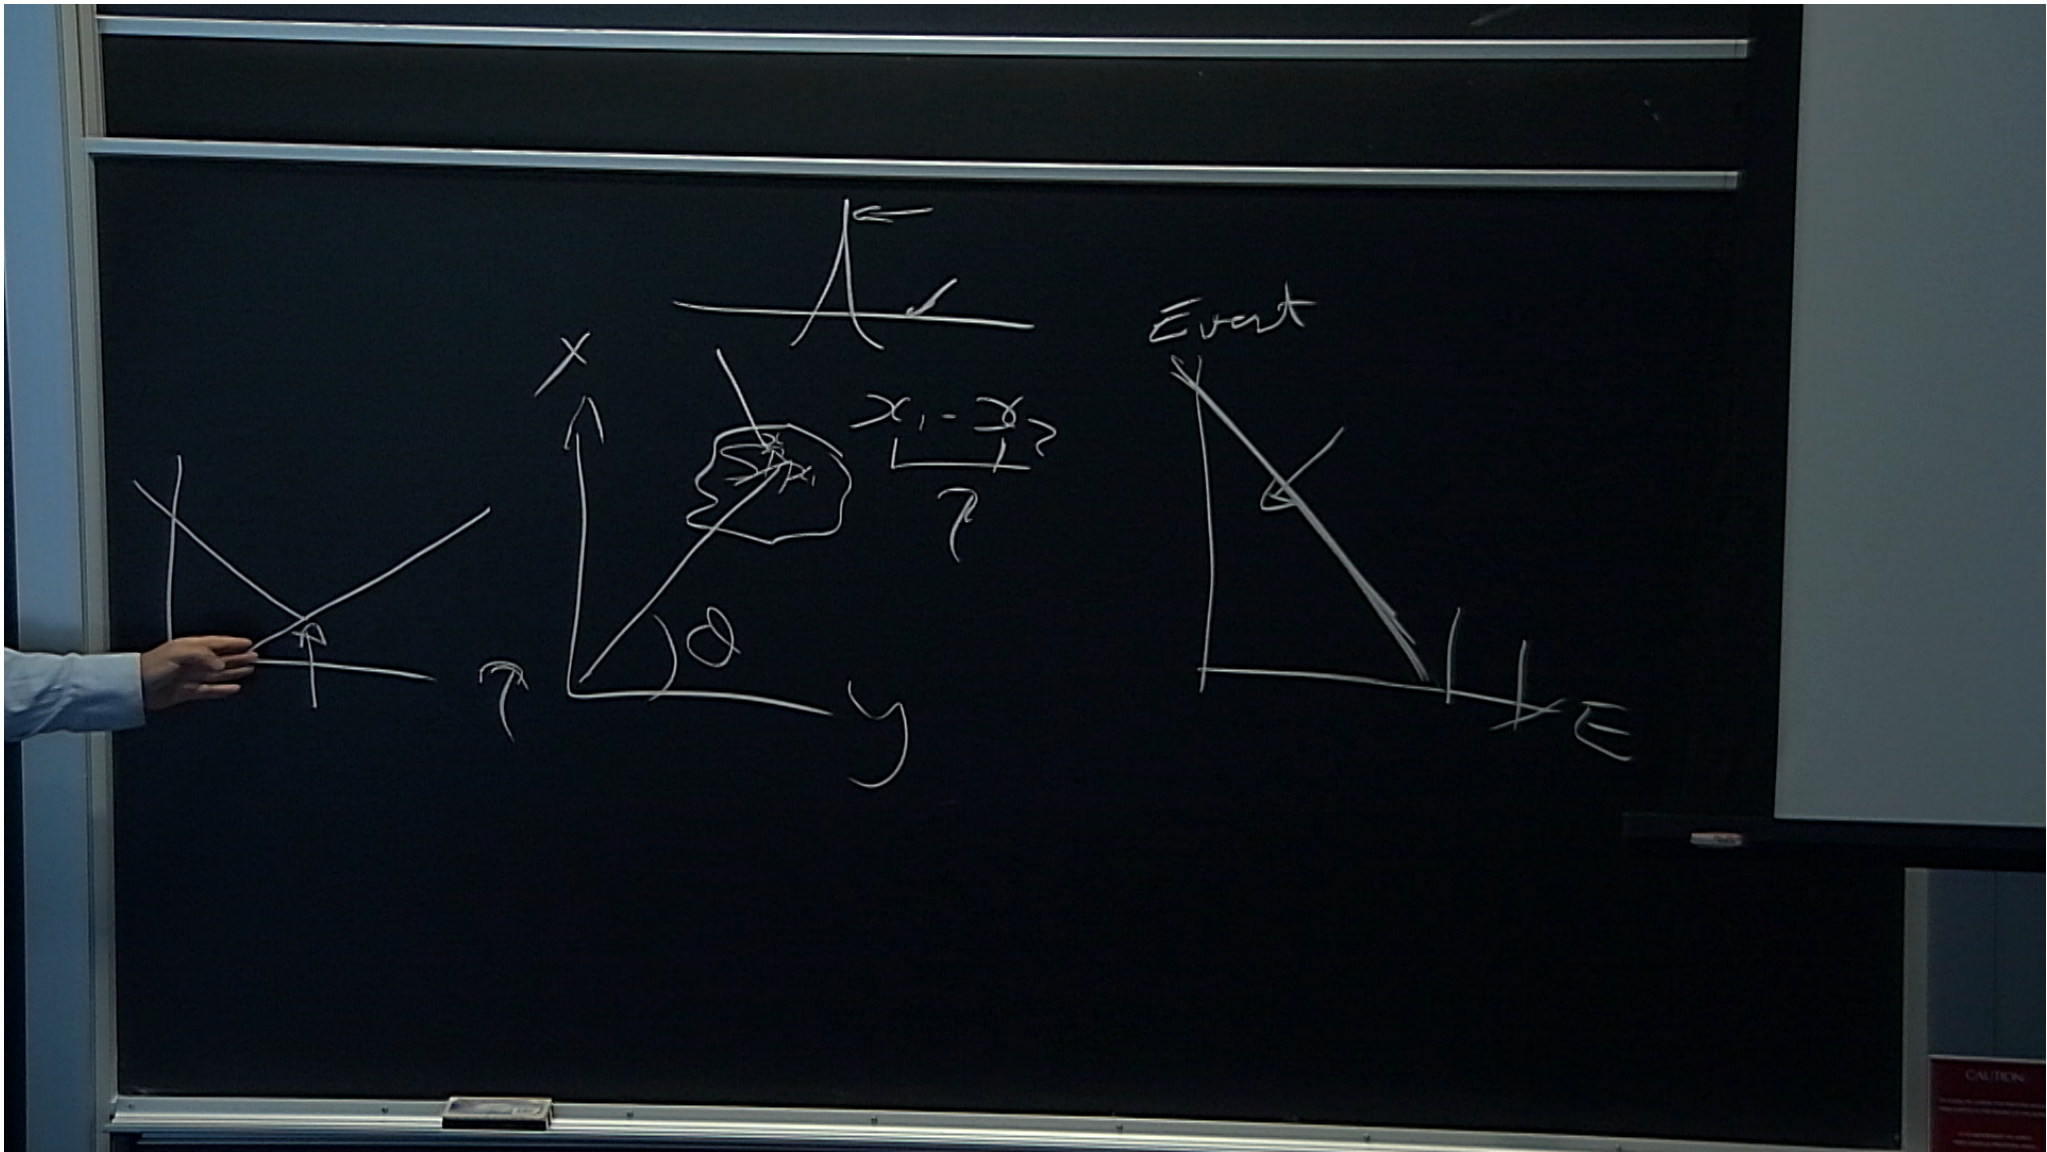 Event
x
x₁ - x₂
x₁
θ
y
E
CAUTION